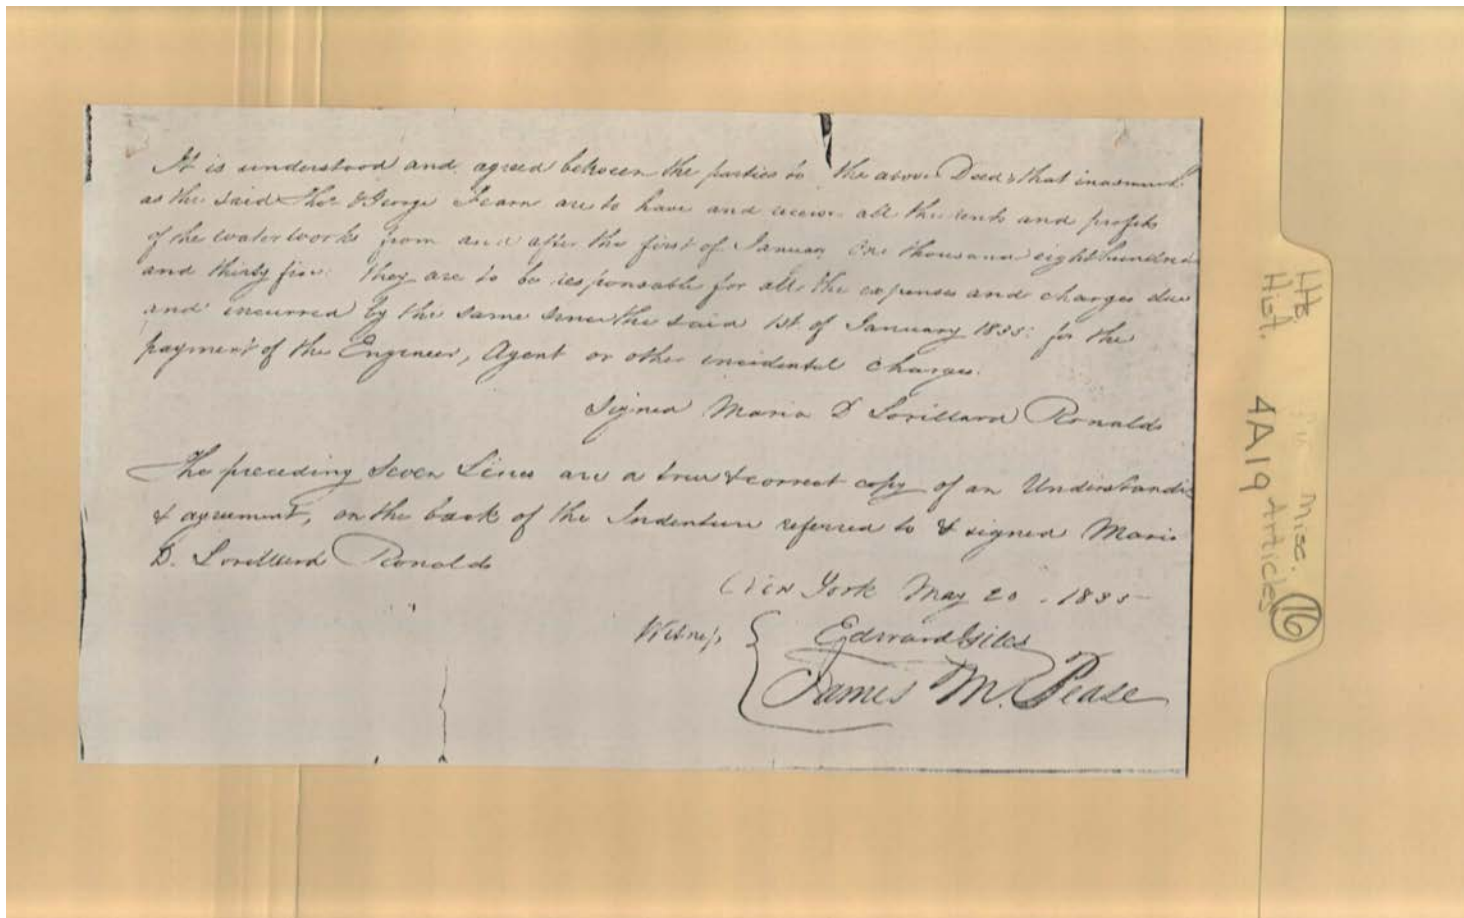 It is understood and agreed between the parties to the above Deed that inasmuch
as the said Thos & George Fearn are to have and receive all the rents and profits
of the water works from and after the first of January One thousand eight hundred
and thirty five: they are to be responsable for all the expenses and charges due
and incurred by the same since the said 1st. of January 1835: for the
payment of the Engineer, Agent or other incidental charges.
Signed Maria D Lorillard Ronalds
The preceding Seven Lines are a true & correct copy of an Understanding
& agreement, on the back of the Indenture referred to & signed Maria
D. Lorillard Ronalds
New York May 20. 1835
Witness Edward Giles
James M. Pease
Hist.
4A19
Misc. 16
Articles